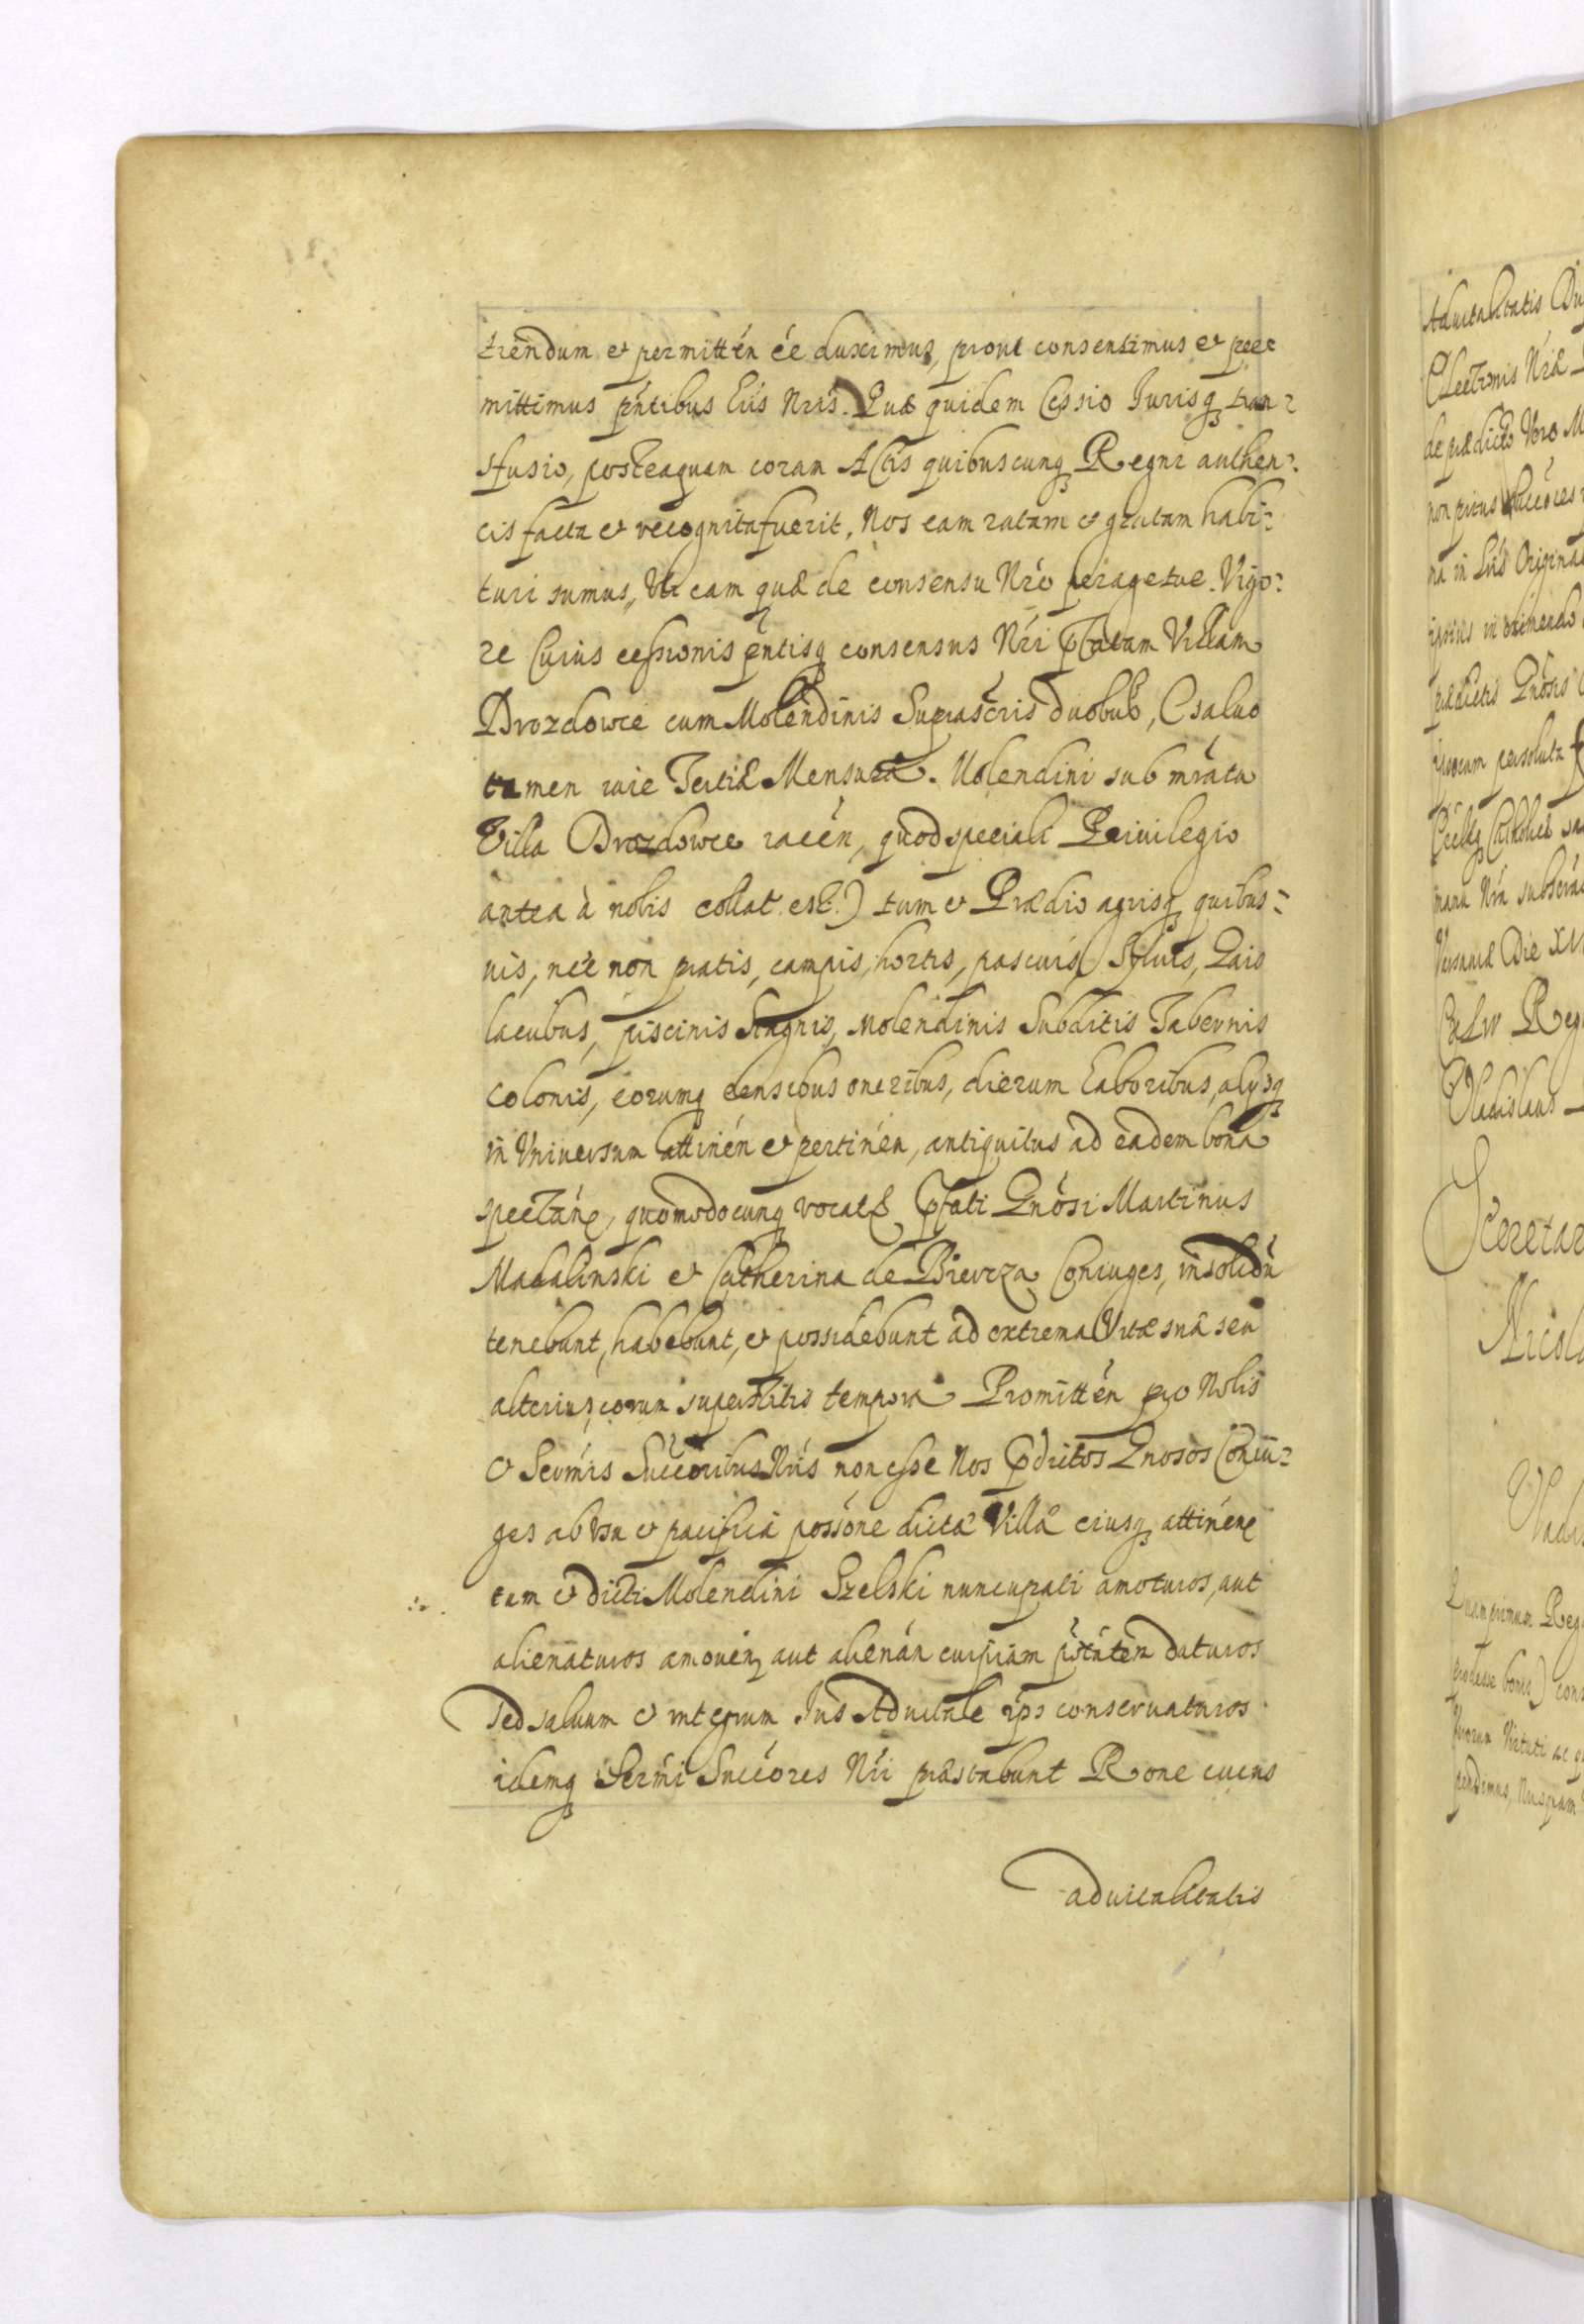 tiendum et permittén ée duximus, prout consentimus et per=
mittimus pńtibus Lris Nris. Quæ quidem Cessio Jurisq tran=
sfusio, posteaquam coram Actis quibuscunq Regni authen=
cis facta et recognita fuerit, Nos eam ratam et gratam habi=
turi sumus, Uti eam quæ de consensu Nro peragetur. Vigo=
re Cuius cessionis pntisq consensus Nri pfatam Villam
Drozdowce cum Molendinis Suprascris duobus, (saluo
tamen iure Tertiæ Mensuræ. Molendini sub
Villa Drozdowce racén, quod speciali Priuilegio
antea à nobis collat. est.) tum et Prædio agrisq quibus=
uis, nec non pratis, campis, hortis, pascuis, Syluis,
lacubus, piscinis Stagnis, Molendinis Subditis Tabernis
Colonis, eorumq censibus oneribus, dierum laboribus, alysq
in Vniuersum attinén et pertinén, antiquitus ad eadem bona
spectáń, quomodocunq vocatis pfati Gnósi Martinus
Madalinski et Catherina de Coniuges, insolidũ
tenebunt, habebunt, et possidebunt ad extrema Vitæ suæ seu
alterius eorum superstitis tempora Promittén pro Nobis
et Sermis Succoribus Nris non esse Nos pdictos Gnosos Coniu=
ges ab Vsu et pacifica possóne dictæ Villæ eiusq attinéń
tum et dicti Molendini Szelski nuncupati amoturos, aut
alienaturos amouéń aut alienáń cuipiam ptátém daturos
Sed saluum et integrum Jus Aduitale ips conseruaturos
idemq Sermi Succóres Nri præstabunt Rone cuius
aduitalitatis
Aduitalitatis
Electionis Nræ
de prædicto Vero M
non prius Succóres
na in Lris Origina
ipsius in eximendo
prædictis Gnósis
ipsorum persoluta
manu Nra subscr
Varsauiæ Die XV
Reg
Vladislaus
Secretar
Nicola
Quamprimum Reg
cons